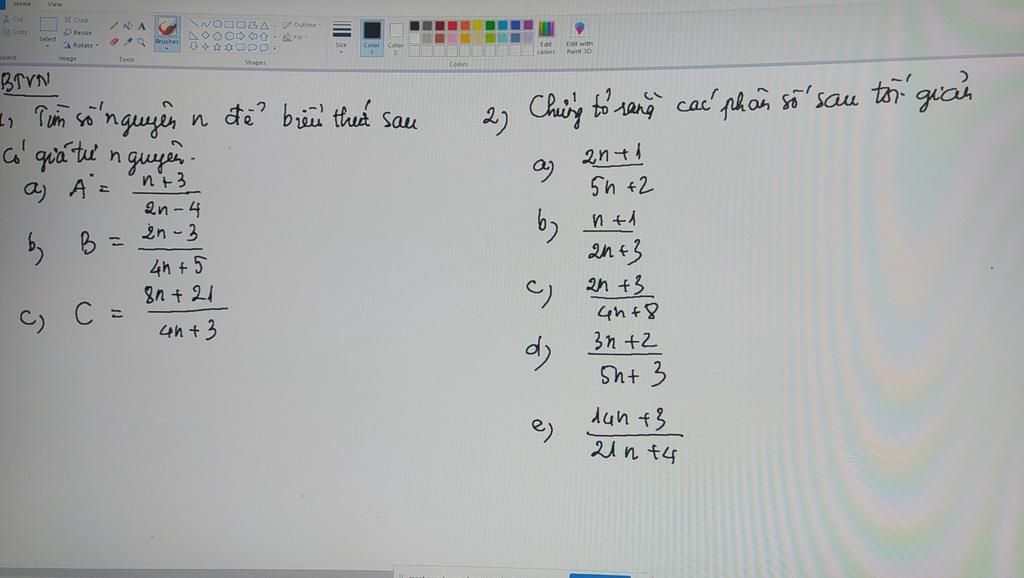 Home View
Cut
Copy
Select
Crop
Resize
Rotate
Image
Tools
Brushes
Shapes
Outline
Fill
Size
Color 1
Color 2
Colors
Edit colors
Edit with Paint 3D
BTVN
1, Tìm số nguyên n để biểu thức sau
có giá trị nguyên.
a) A = n+3 / 2n-4
b) B = 2n-3 / 4n+5
c) C = 8n+21 / 4n+3
2) Chứng tỏ rằng các phân số sau tối giản
a) 2n+1 / 5n+2
b) n+1 / 2n+3
c) 2n+3 / 4n+8
d) 3n+2 / 5n+3
e) 14n+3 / 21n+4